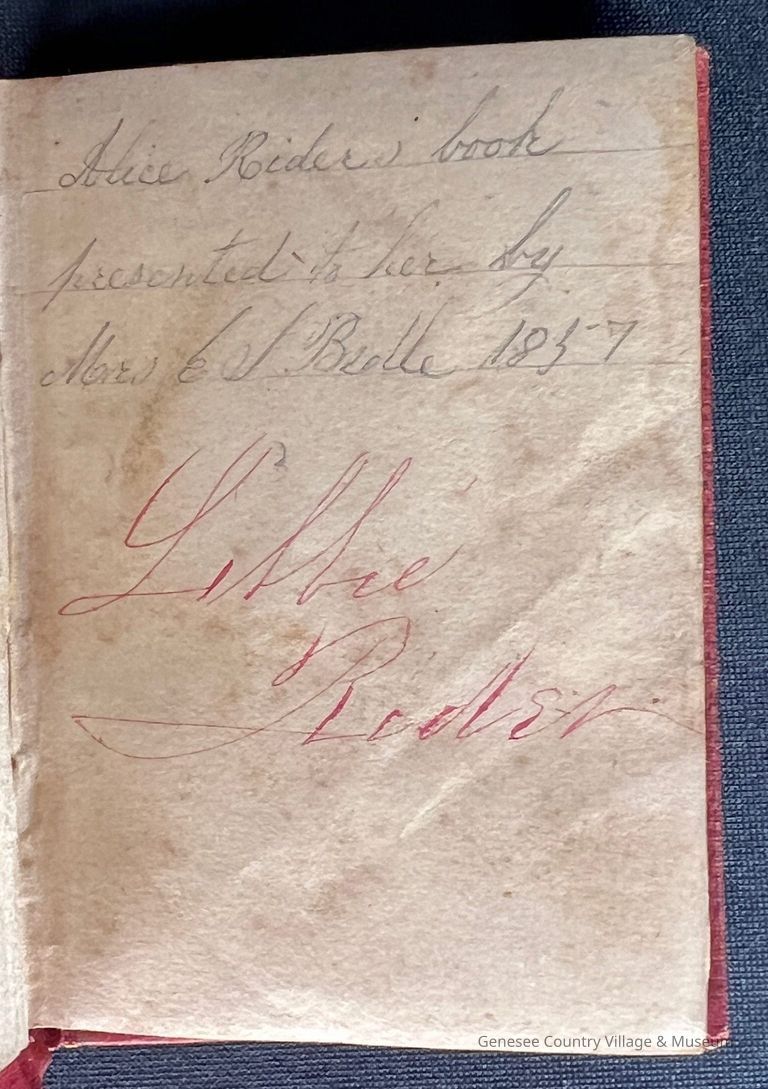 Alice Riders book
presented to her by
Mrs E S 1857
Libbie
Rider
Genesee Country Village & Museum